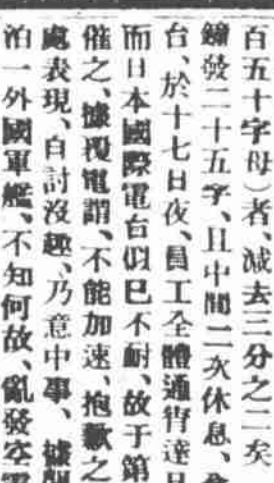 百五十字母）者、減去三分之二矣
鐘發二十五字、且中間二次休息、
台、於十七日夜、員工全體通宵達
而日本國際電台似已不耐、故于第
催之、據覆電謂、不能加速、抱歉之
處表現、自討沒趣、乃意中事、據
泊一外國軍艦、不知何故、亂發空電